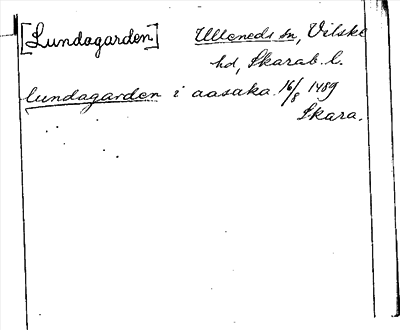 [Lundagarden] Ulleneds sn, Vilske
hd, Skarab. l.
lundagarden i aasaka. 16/8 1489
Skara.